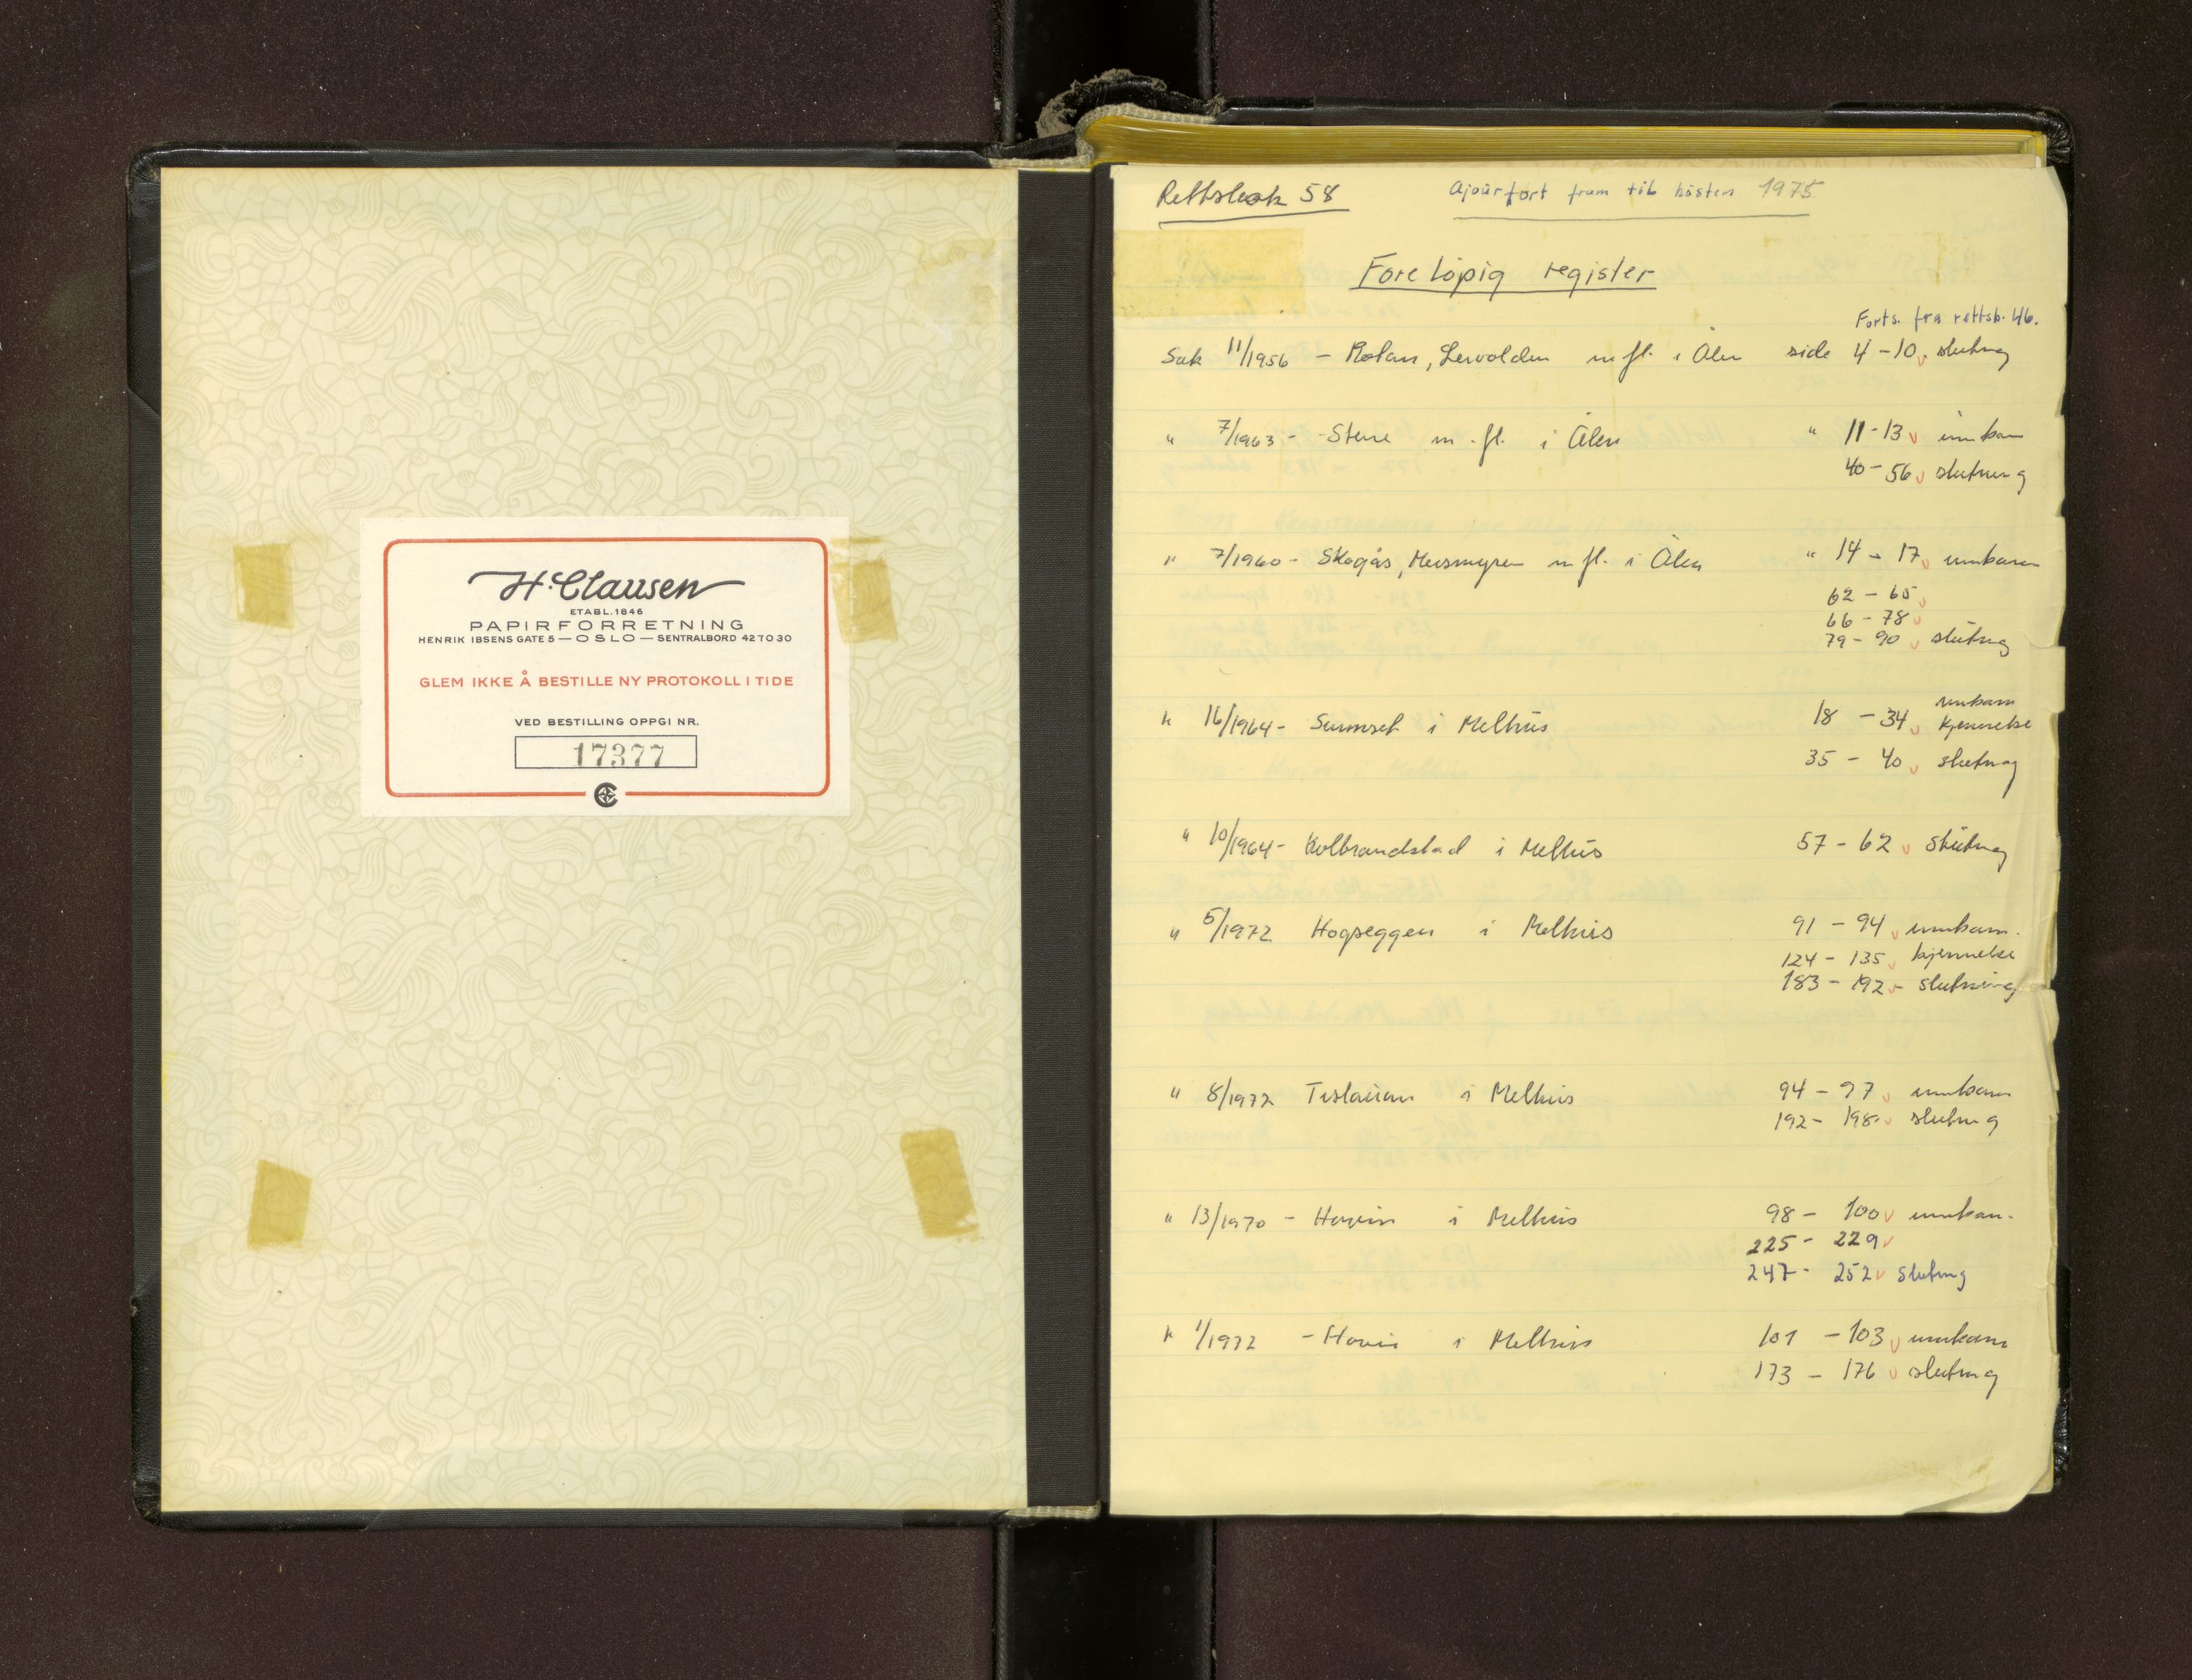 H. Clausen
ETABL. 1846
PAPIRFORRETNING
HENRIK IBSENS GATE 5 — OSLO — SENTRALBORD 42 70 30
GLEM IKKE Å BESTILLE NY PROTOKOLL I TIDE
VED BESTILLING OPPGI NR.
17377
Rettsbok 58 Ajourført fram til høsten 1975
Foreløpig register
Forts. fra rettsb. 46.
Sak 11/1956 – m fl. i Ålen side 4 – 10 slutning
" 7/1963 - Stene m. fl. i Ålen " 11 - 13 innkam
40 – 56 slutning
" 7/1960 - Skogås, m fl. i Ålen " 14 – 17 innkam
62 – 65
66 – 78
79 – 90 slutning
innkam
" 16/1964 - i Melhus 18 – 34 kjennelse
35 – 40 slutning
" 10/1964 - Kolbrandstad i Melhus 57 – 62 slutning
" 5/1972 Hogseggen i Melhus 91 – 94 innkam.
124 – 135 kjennelse
183 – 192 - slutning
" 8/1972 i Melhus 94 – 97 innkam
192 – 198 slutning
" 13/1970 – Hovin i Melhus 98 – 100 innkam.
225 – 229
247 - 252 slutning
" 1/1972 – Hovin i Melhus 101 – 103 innkam
173 – 176 slutning